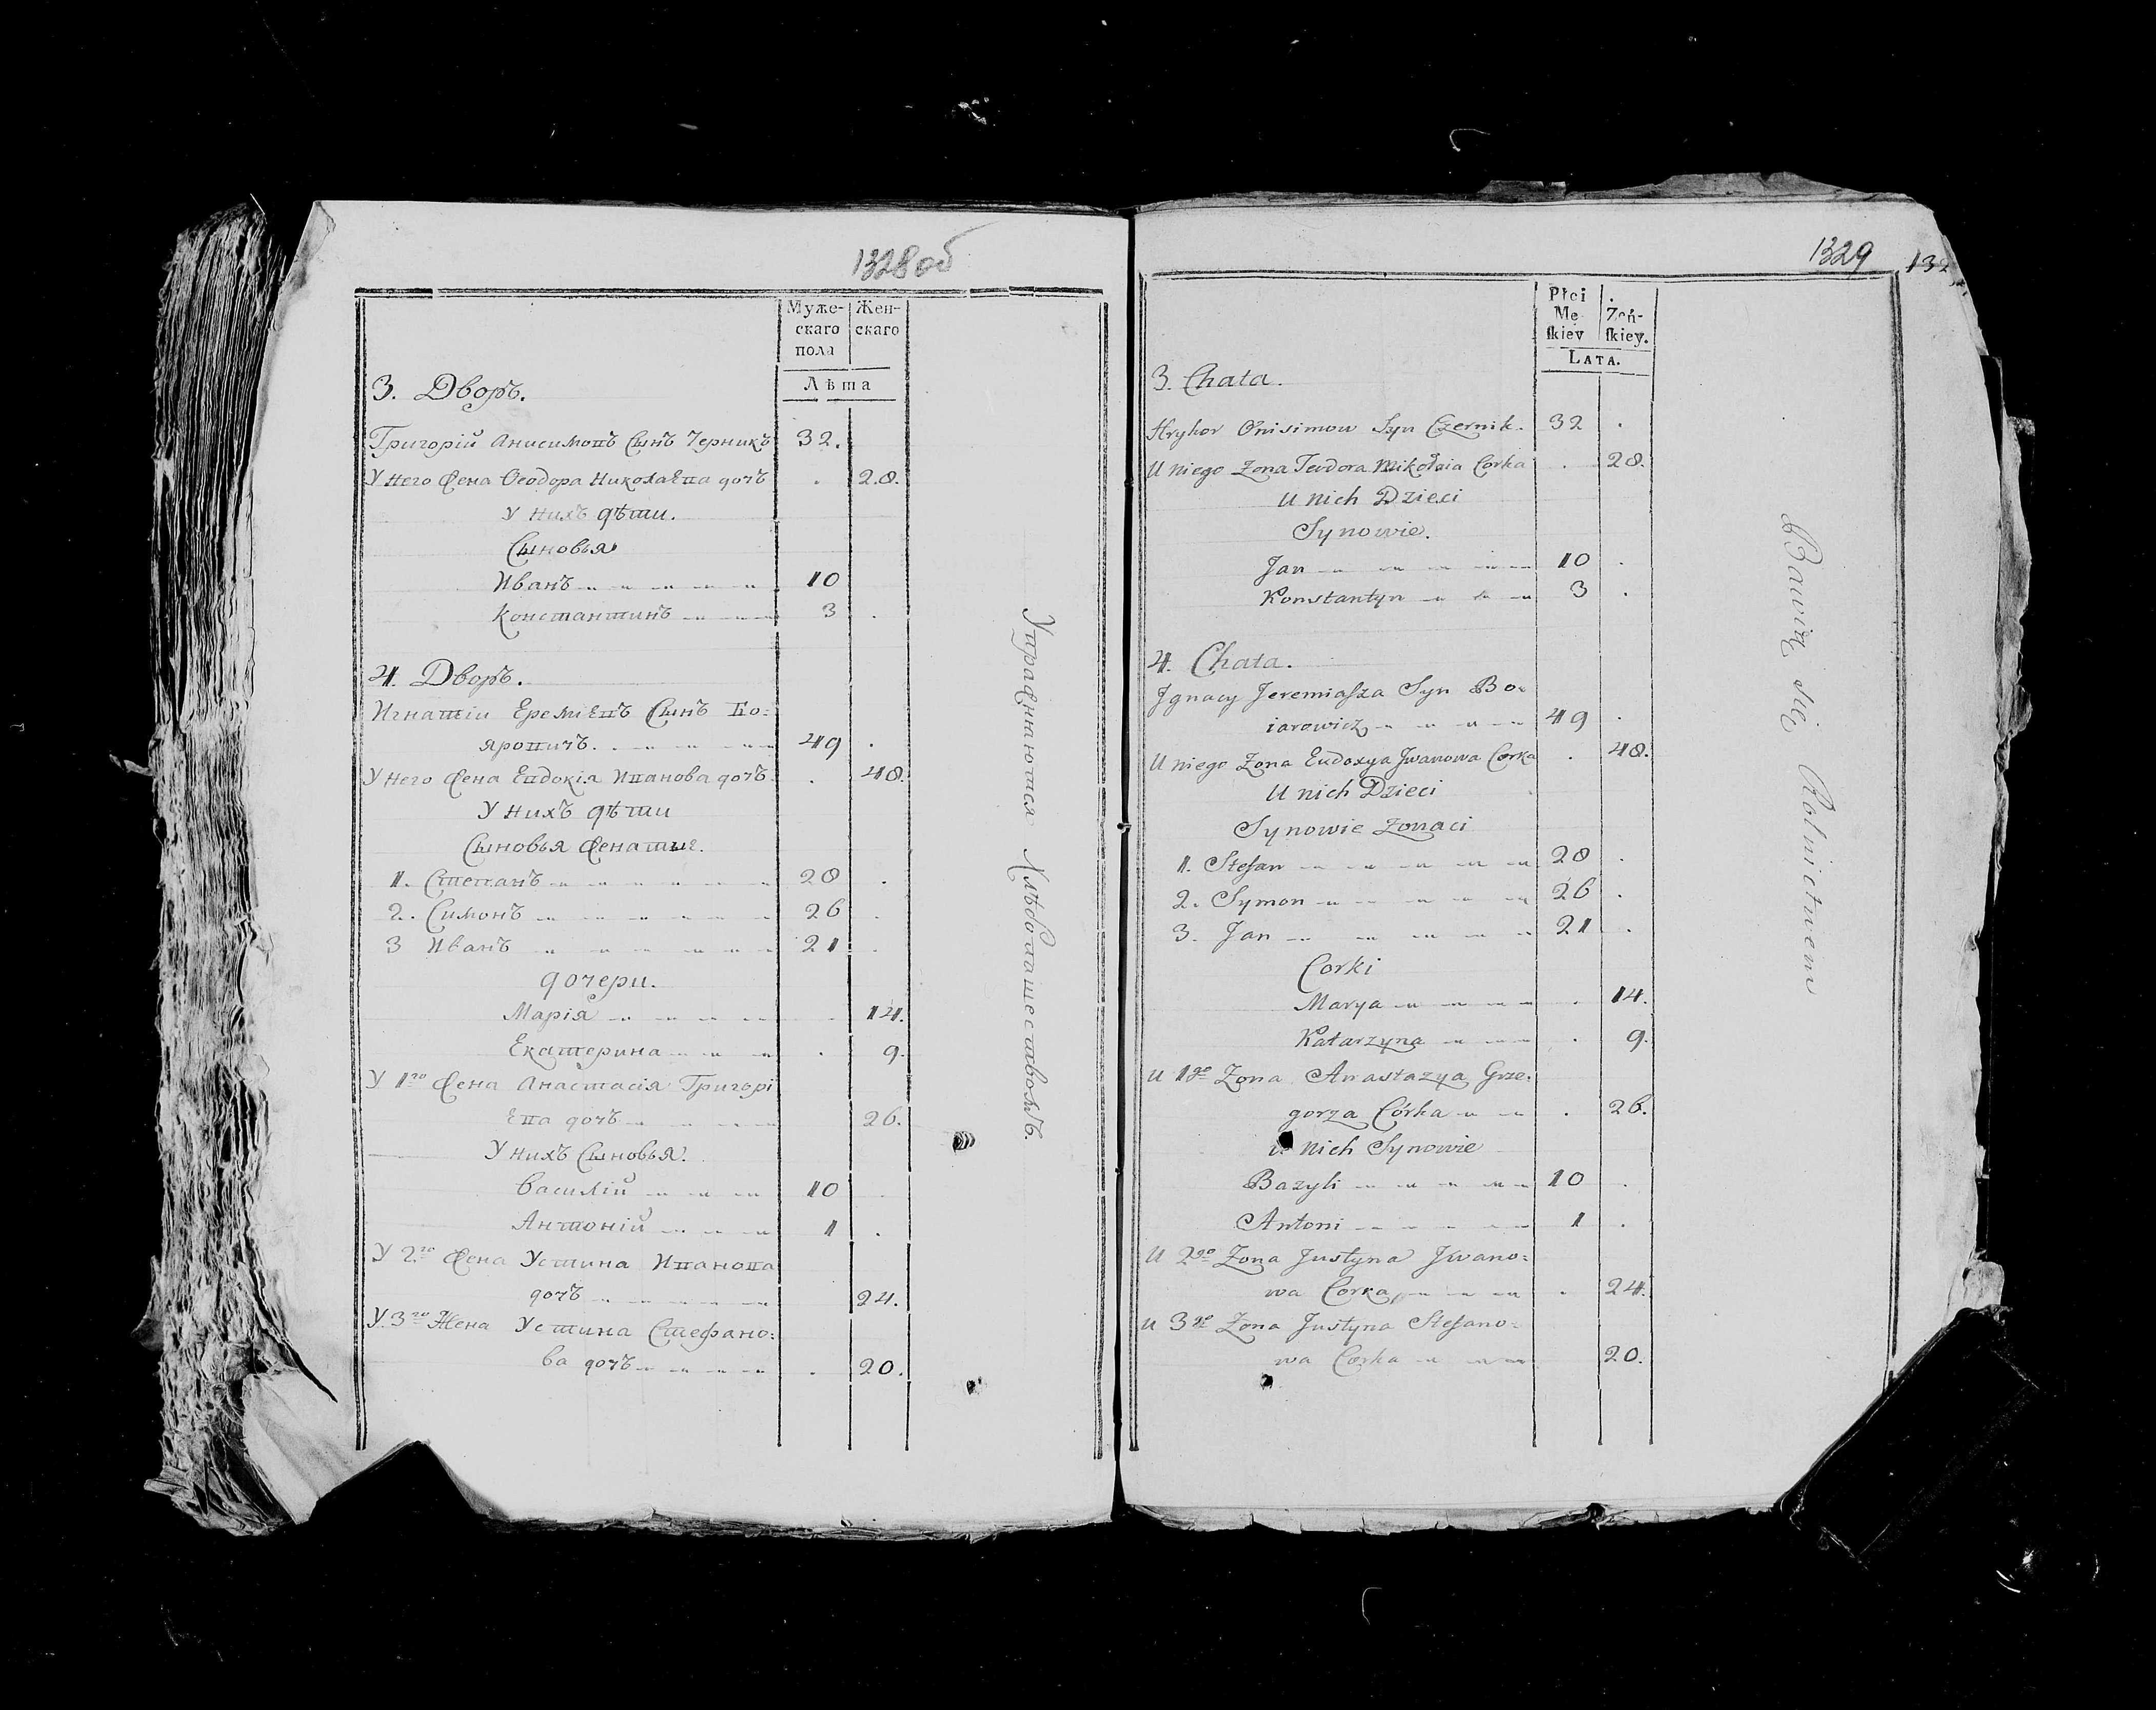 1328об
Муже-
скаго
пола
Жен-
скаго
Лѣта
3. Дворъ.
Григорій Анисимовъ Сынъ Черникъ 32.
У него жена Ѳеодора Николаева дочь . 28.
У нихъ дѣти.
Сыновья
Иванъ 10
Константинъ 3 .
4. Дворъ.
Игнатій Еремѣевъ Сынъ Бо:
яровичъ. 49 .
У него жена Евдокія Иванова дочь . 48.
У нихъ дѣти
Сыновья женатые.
1. Степанъ 28 .
2. Симонъ 26 .
3 Иванъ 21 .
дочери.
Марія . 14.
Екатерина . 9.
У 1го жена Анастасія Григорі
ева дочь 26.
У нихъ Сыновья.
Василій 10 .
Антоній 1 .
У 2го жена Устина Иванова
дочь 24.
У 3го Жена Устина Стефано:
ва дочь . 20.
Упражняются Хлѣбопашествомъ.
1329
132
Płci
Mę
skiey
Żeń-
skiey.
LATA.
3. Chata.
Hryhor Onisimow Syn Czernik. 32 .
U niego Zona Teodora Mikołaia Corka . 28.
U nich Dzieci
Synowie.
Jan 10 .
Konstantyn 3 .
4. Chata.
Jgnacy Jeremiasza Syn Bo:
iarowicz 49 .
U niego Zona Eudoxya Jwanowa Corka . 48.
U nich Dzieci
Synowie Zonaci
1. Stefan 28 .
2. Symon 26 .
3. Jan 21 .
Corki
Marya . 14.
Katarzyna . 9.
U 1go Zona Anastazya Grze:
gorza Córka . 26.
u nich Synowie
Bazyli 10 .
Antoni 1 .
U 2go Zona Justyna Jwano:
wa Corka . 24.
U 3go Zona Justyna Stefano:
wa Corka 20.
Bawią się Rolnictwem